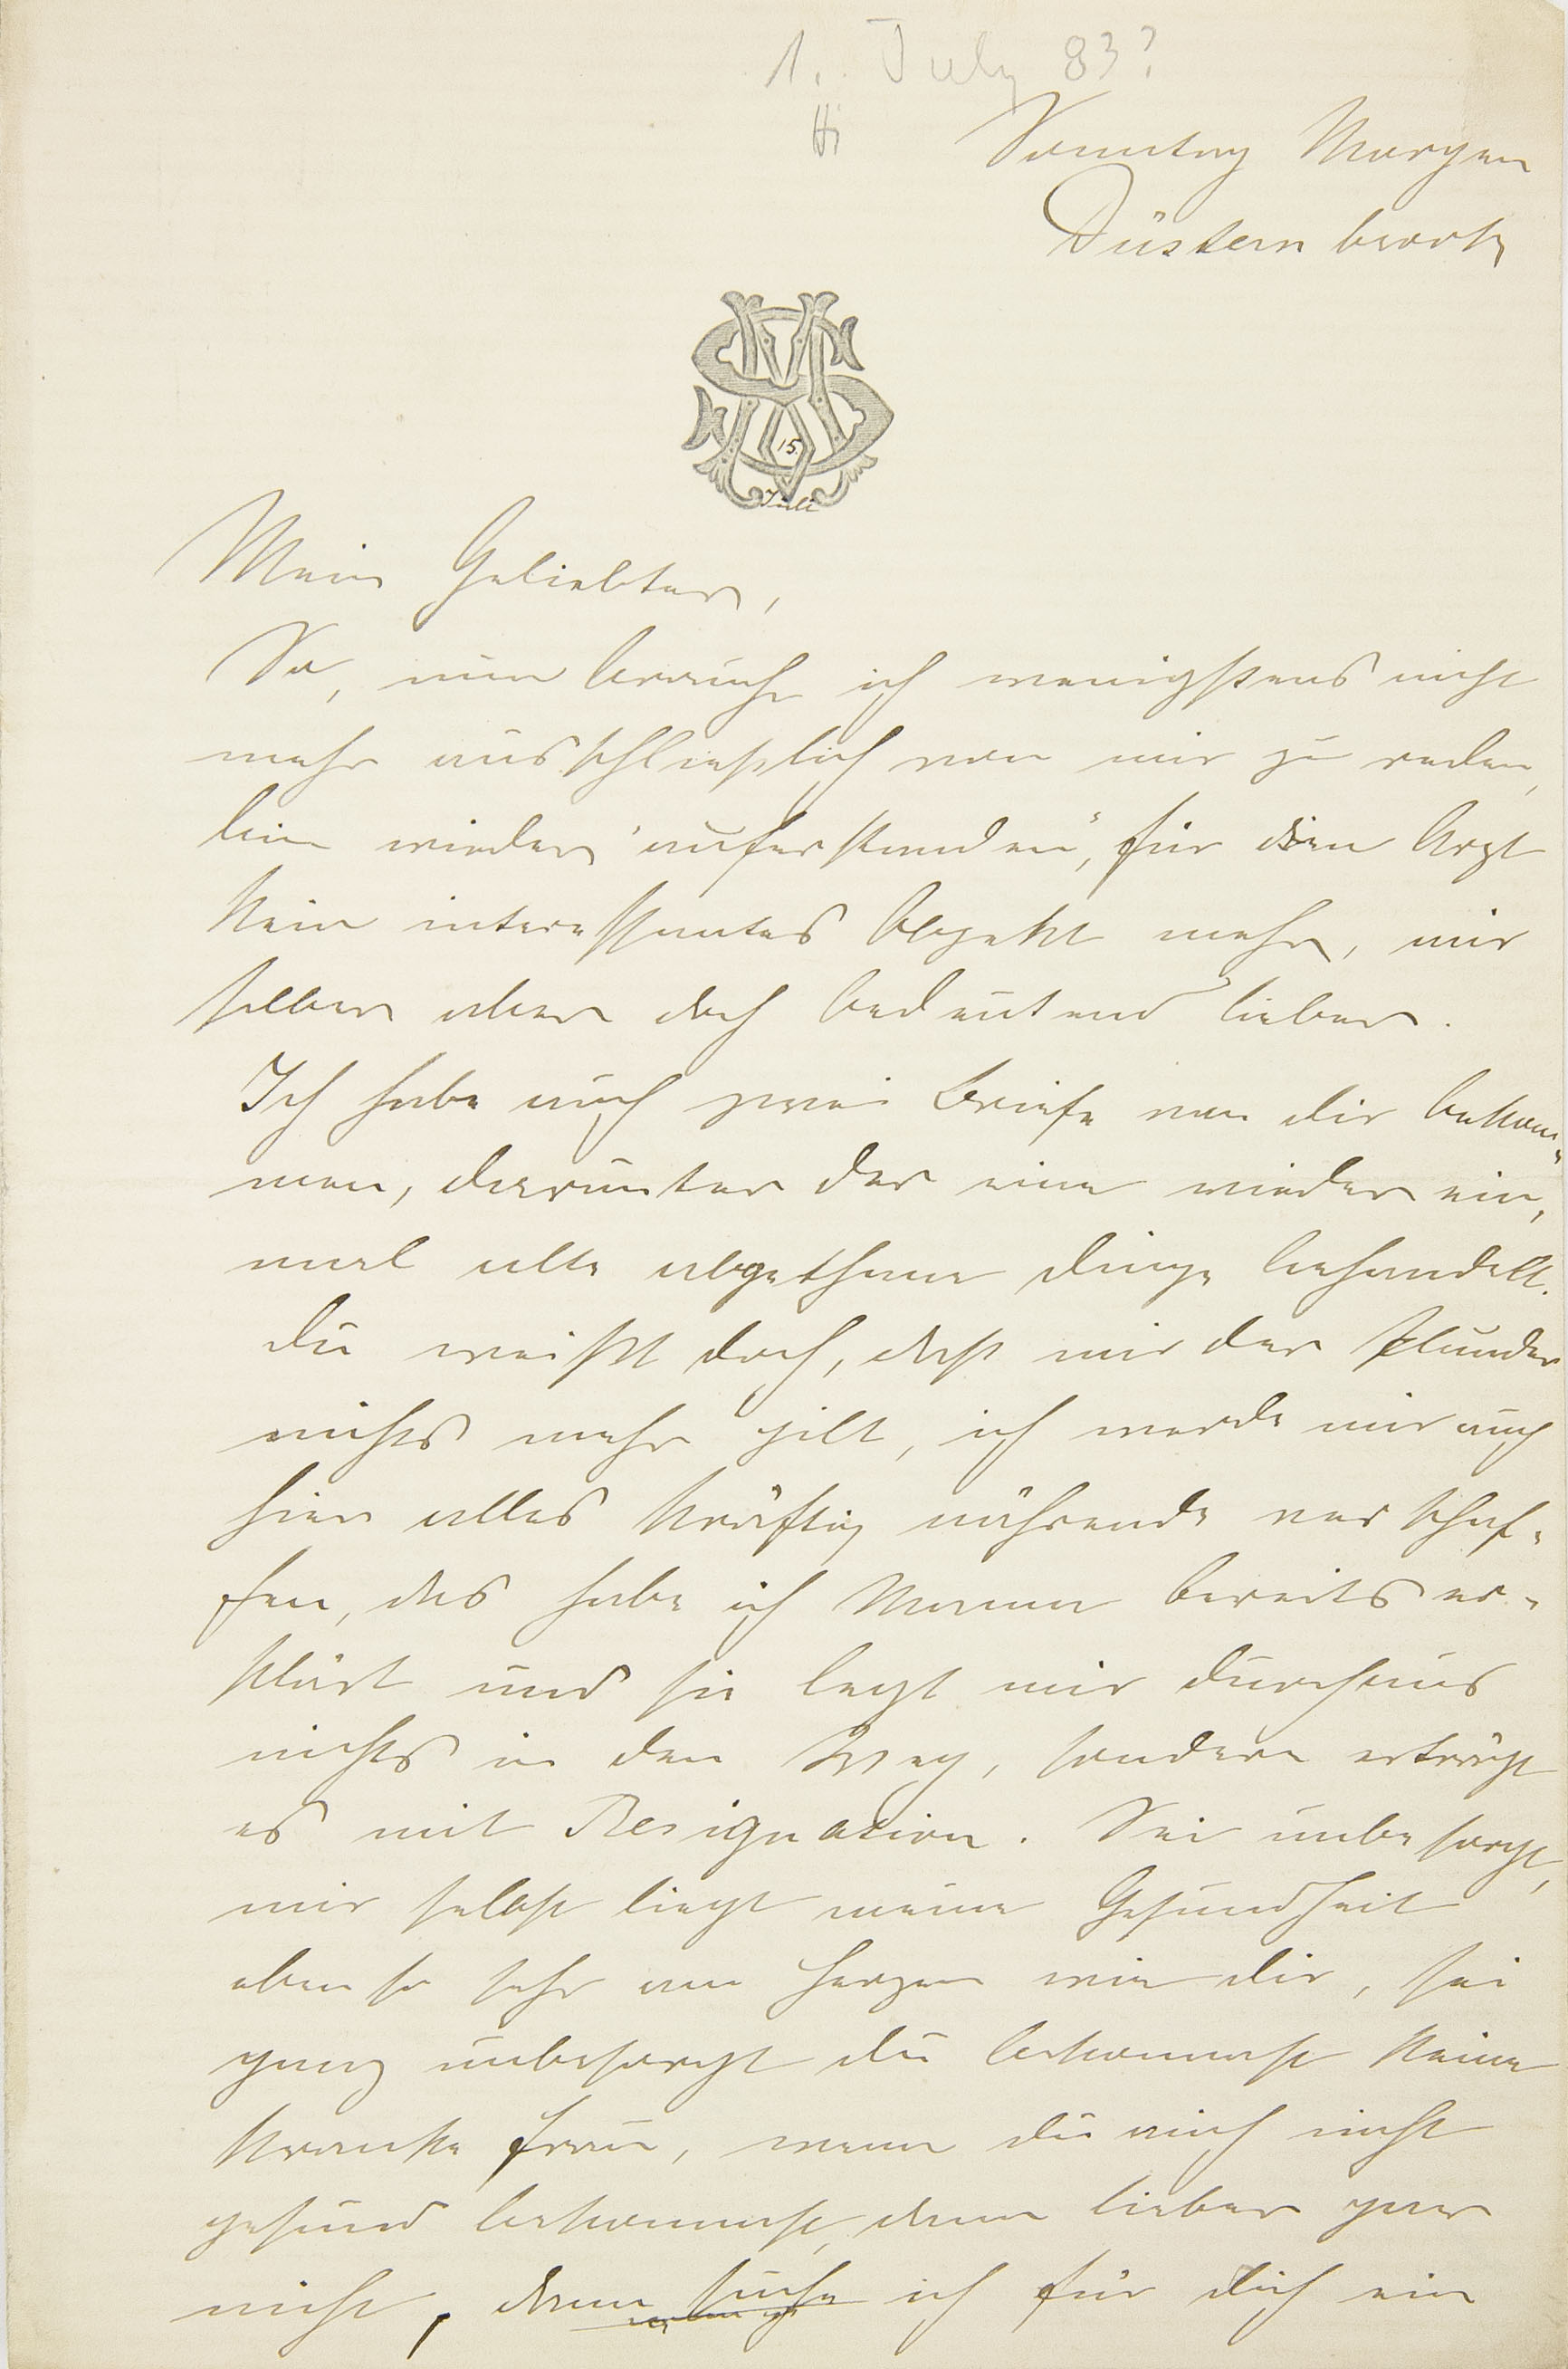 1. July 83?
Hi
Sonntag Morgen
Düsternbrook
MS
15.
Juli
Mein Geliebter,
So, nun brauche ich wenigstens nicht
mehr ausschließlich von mir zu reden,
bin wieder "auferstanden", für den Arzt
kein interessantes Objekt mehr, mir
selber aber doch bedeutend lieber.
Ich habe auch zwei Briefe von dir bekom-
men, darunter der eine wieder ein-
mal alte abgethane Dinge behandelt.
Du weißt doch, daß mir der Plunder
nichts mehr gilt, ich werde mir auch
hier alles kräftig nährende verschaf-
fen, das habe ich Mama bereits er-
klärt und sie legt mir durchaus
nichts in den Weg, sondern erträgt
es mit Resignation. Sei unbesorgt,
mir selbst liegt meine Gesundheit
eben so sehr am Herzen wie dir, sei
ganz unbesorgt du bekommst keine
kranke Frau, wenn du mich nicht
gesund bekommst, dann lieber gar
nicht, dann suche ich für dich ein